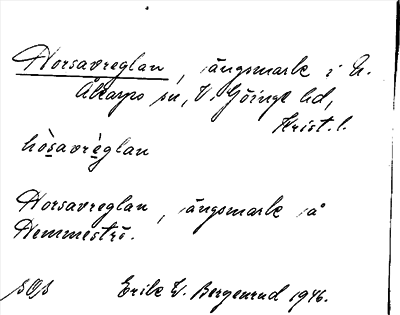 Horsavreglan, ängsmark i N.
Åkarps sn, V. Göinge hd,
Krist. l.
hòsavrèglan
Horsavreglan, ängsmark på
Hemmeströ.
Erik W. Bergenrud 1946.